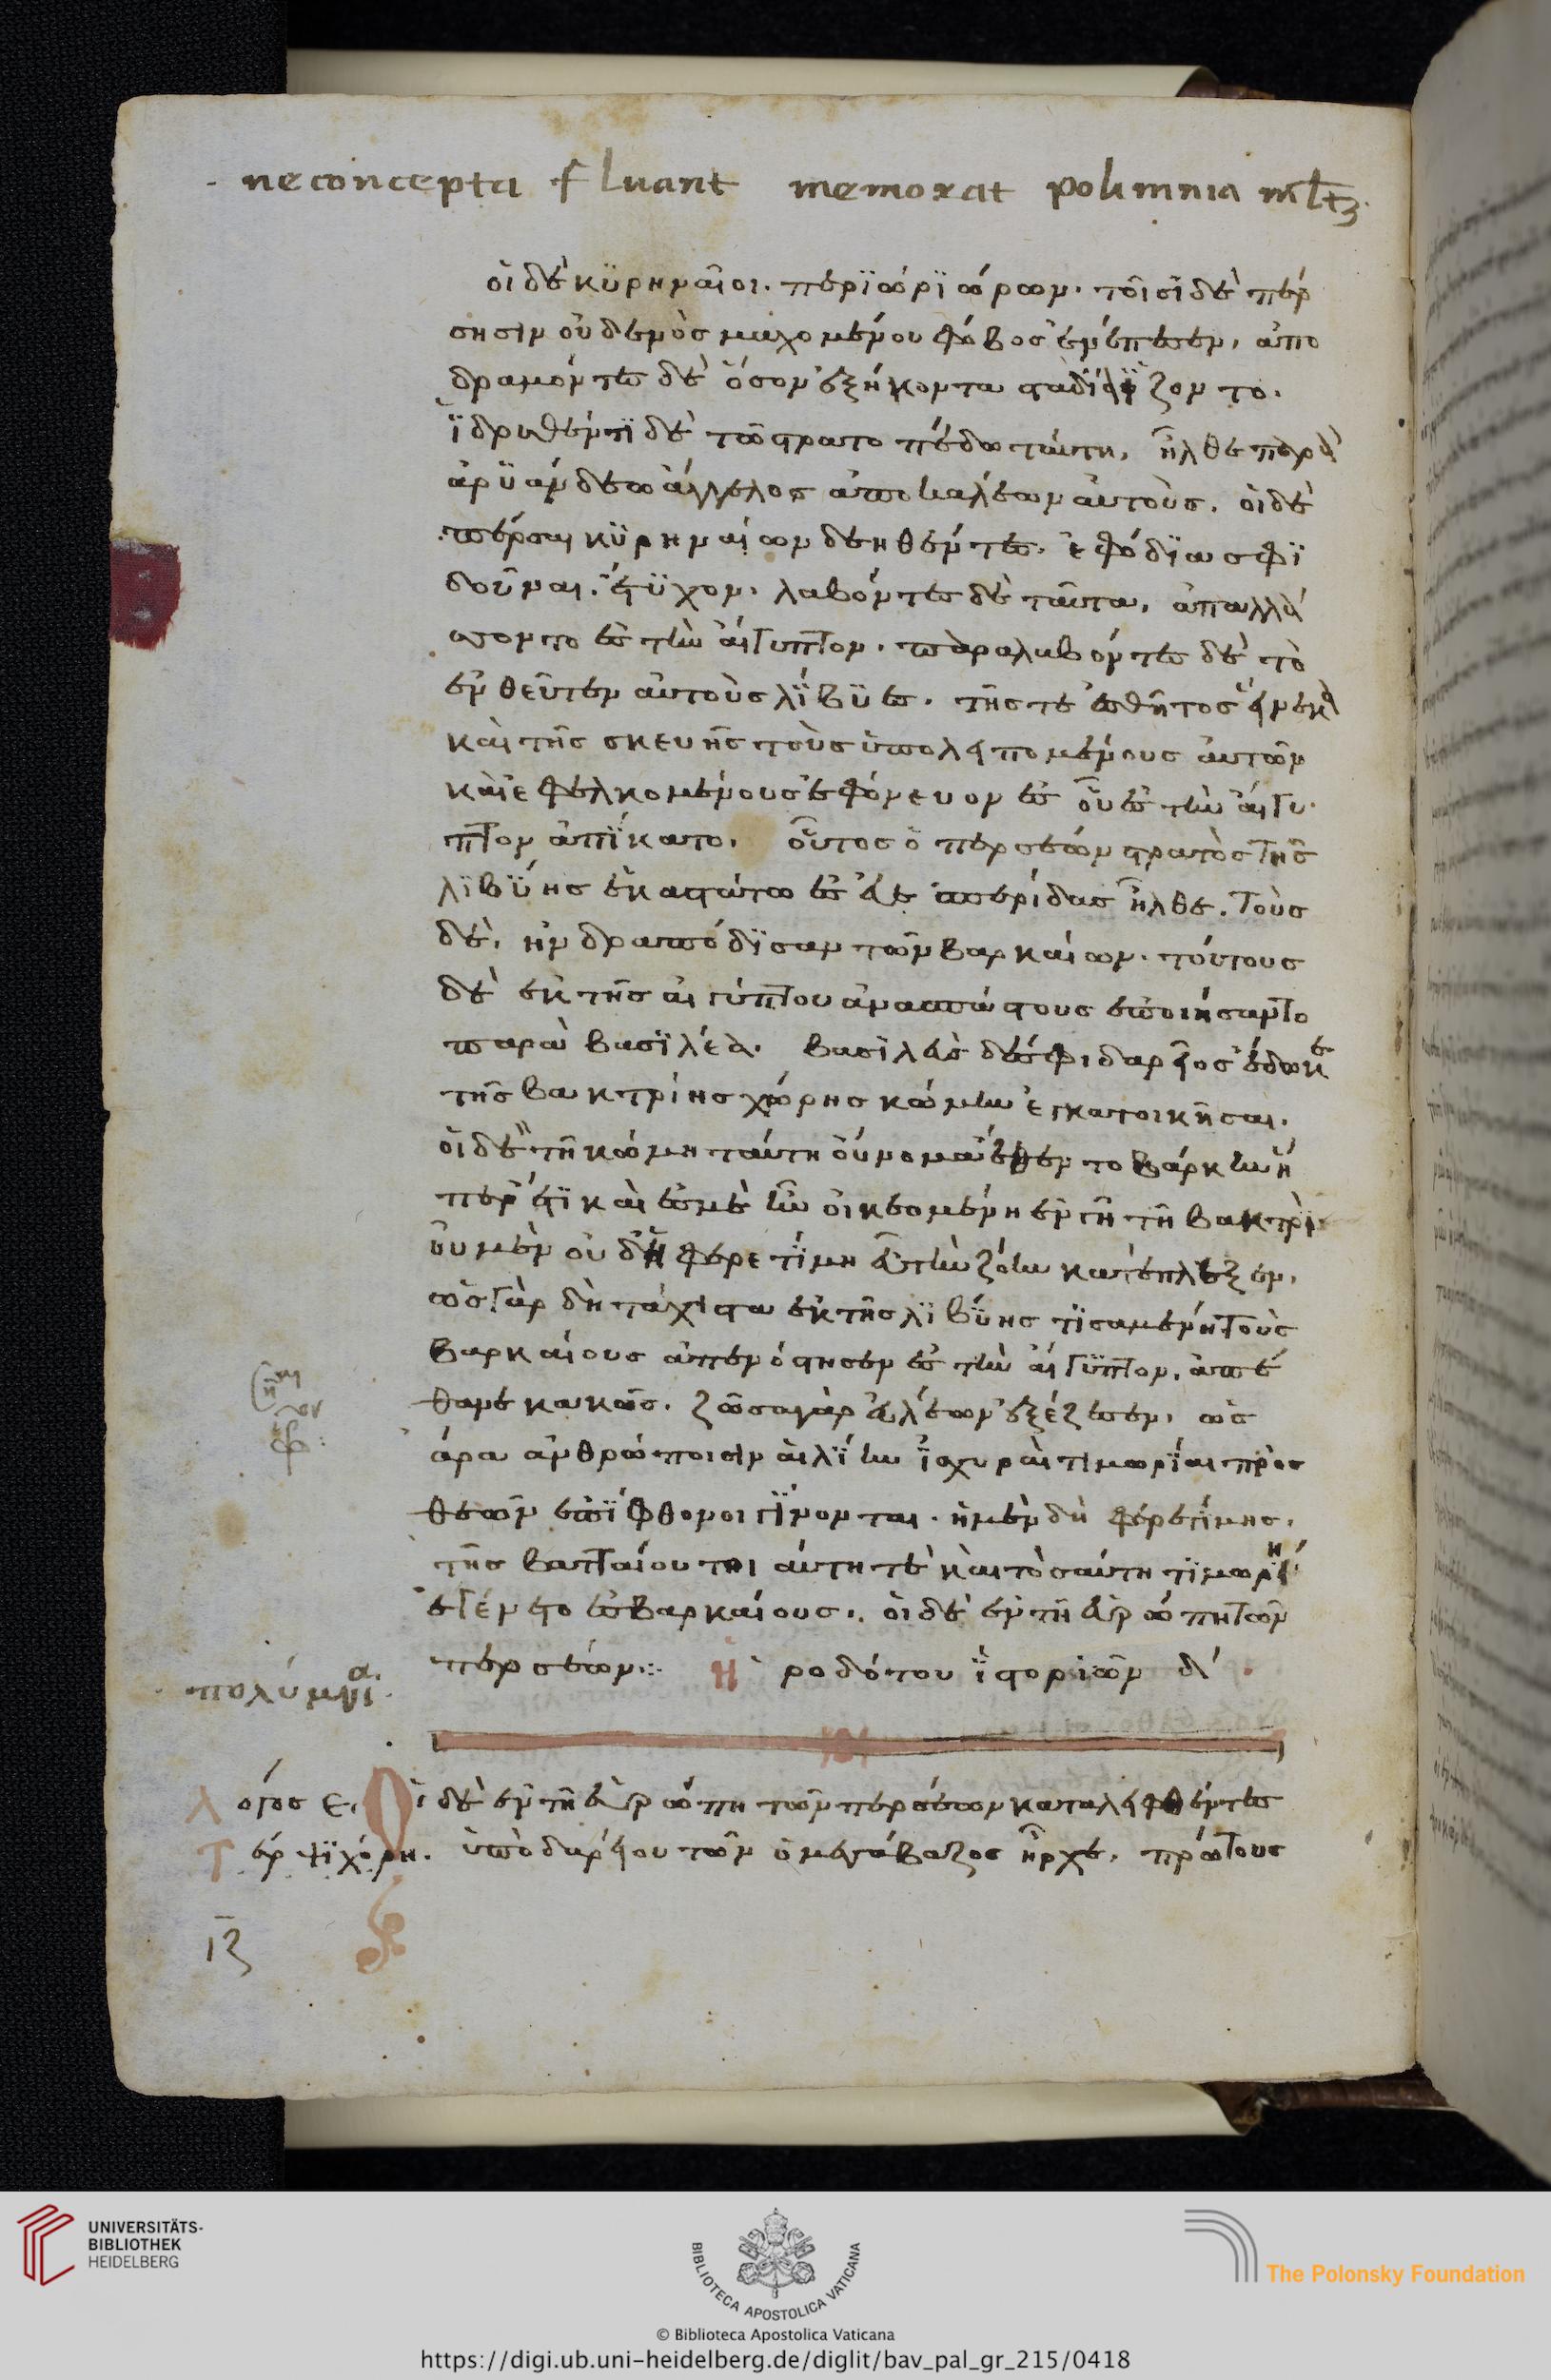 ne concepta fluant memorat polimnia mltꝫ
οἱ δὲ κϋρηναῖοι. περϊώρϊ ώρων. τοῖσἰ δὲ πέρ
σησιν οὐδενὸς μαχομένου φόβος ἐνέπεσεν, ἀπο
δραμόντες δὲ ὅσον ἑξήκοντα στάδϊα ἵζοντο.
ἱδρυθέντϊ δὲ τῶ στρατοπέδω ταύτη, ἦλθε παρὰ
ἀρϋάνδεω ἄγγελος ἀποκαλέων αὐτοὺς. οἱ δὲ
πέρσαι κϋρηναίων δεηθέντες. ἐφόδϊα σφϊ
δοῦναι. ἔτϋχον. λαβόντες δὲ ταῦτα, ἀπαλλά
σσοντο ἐς τὴν αἴγυπτον. παραλαβόντες δὲ τὸ
ἐνθεῦτεν αὐτοὺς λΐβϋες. τῆς τε ἐσθῆτος εἵνεκα
καὶ τῆς σκευῆς τοὺς ὑπολειπομένους αὐτῶν
καὶ ἐφελκομένους ἐφόνευον ἐς οὗ ἐς τὴν αἴγυ
πτον ἀπίκατο. οὗτος ὁ περσέων στρατὸς τῆς
λϊβϋης ἑκαστάτω ἐς εὐεσπερίδας ἦλθε. τοὺς
δὲ, ἠνδραποδϊσαν τῶν βαρκαίων. τούτους
δὲ ἐκ τῆς αἰγύπτου ἀνασπάστους ἐποιήσαντο
παρὰ βασϊλέα. βασϊλεὺς δέ σφι δαρεῖος ἔδωκε
τῆς βακτρίης χώρης κώμην ἐγκατοικῆσαι.
οἱ δὲ τῆ κώμη ταύτη οὔνομα ἔθεντο βάρκην ἥ
περ ἔτϊ καὶ ἐς μὲ ἦν οἰκεομένη ἐν γῆ τῆ βακτρί
οὐ μὲν οὐδὲ ἡ φερετίμη εὖ τὴν ζόην κατέπλεξεν,
ὡς γὰρ δὴ τάχιστα ἐκ τῆς λϊβϋης τϊσαμένη τοὺς
βαρκαίους ἀπενόστησεν ἐς τὴν αἴγϋπτον, ἀπέ
θανε κακῶς. ζῶσα γὰρ εὐλέων ἐξέζεσεν, ὡς
ἄρα ἀνθρώποισιν αἱ λΐην ἰσχυραὶ τιμωρΐαι πρὸς
θεῶν ἐπΐφθονοι γΐνονται. ἡ μὲν δὴ φερετίμης,
τῆς βαττ αίου τοιαύτη τὲ καὶ τοσαύτη τϊμωρΐη
ἐγένετο ἐς βαρκαίους. οἱ δὲ ἐν τῆ εὐρώπη τῶν
περσέων: Ἡροδότου ἱστοριῶν δ΄
πολύμνια
λόγος ε. Οἱ δὲ ἐν τῆ εὐρώπη τῶν περσέων καταλειφθέντες
Τερψϊχόρη. ὑπὸ δαρείου τῶν ὁ μεγάβαζος ἦρχε, πρώτους
ιζ
UNIVERSITÄTS-
BIBLIOTHEK
HEIDELBERG
BIBLIOTECA APOSTOLICA VATICANA
The Polonsky Foundation
© Biblioteca Apostolica Vaticana
https://digi.ub.uni-heidelberg.de/diglit/bav_pal_gr_215/0418